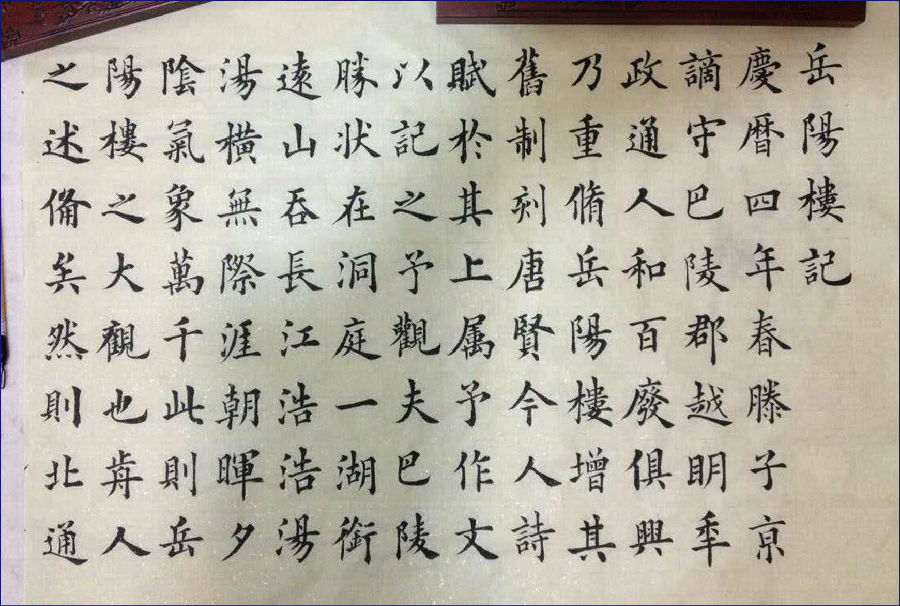 岳陽樓記
慶曆四年春滕子京
謫守巴陵郡越明年
政通人和百廢俱興
乃重脩岳陽樓增其
舊制刻唐賢今人詩
賦於其上属予作文
以記之予觀夫巴陵
勝状在洞庭一湖銜
遠山吞長江浩浩湯
湯橫無際涯朝暉夕
陰氣象萬千此則岳
陽樓之大觀也前人
之述備矣然則北通